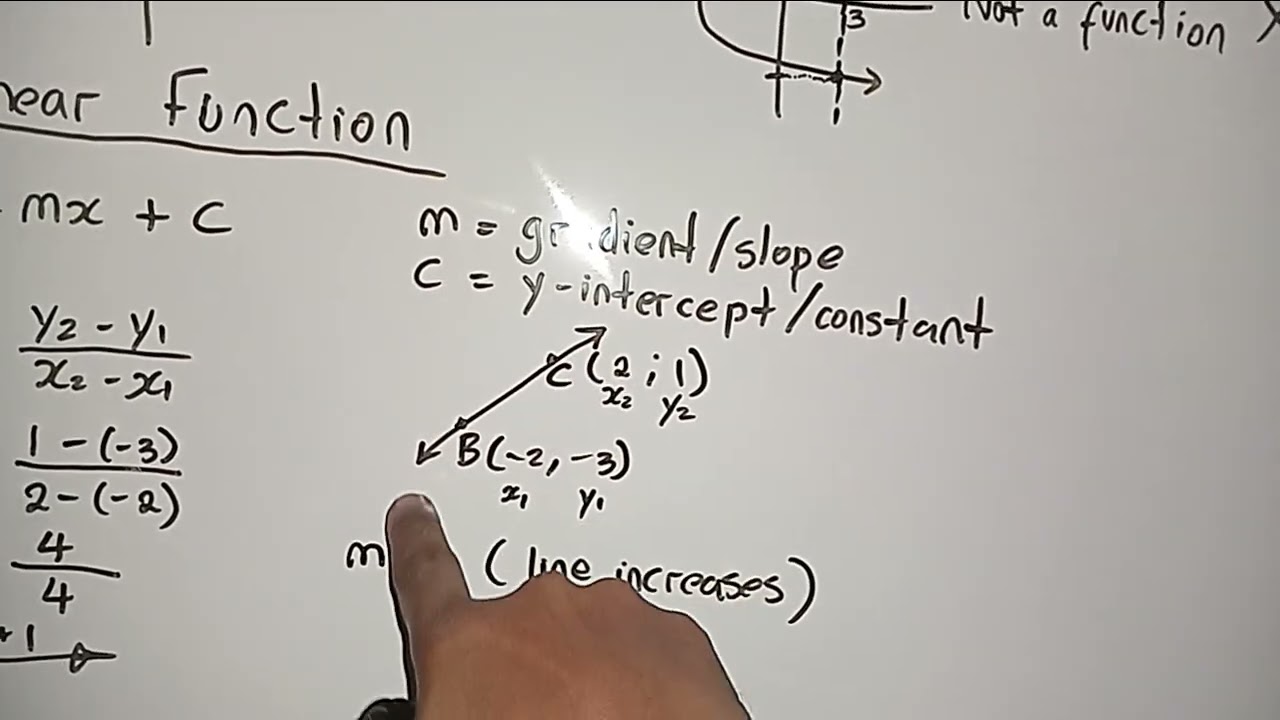 3
Not a function
near Function
mx + c
m = gradient/slope
c = y-intercept/constant
y₂ - y₁
x₂ - x₁
C (2 ; 1)
x₂ y₂
1 - (-3)
2 - (-2)
B(-2, -3)
x₁ y₁
4
4
m (line increases)
+1